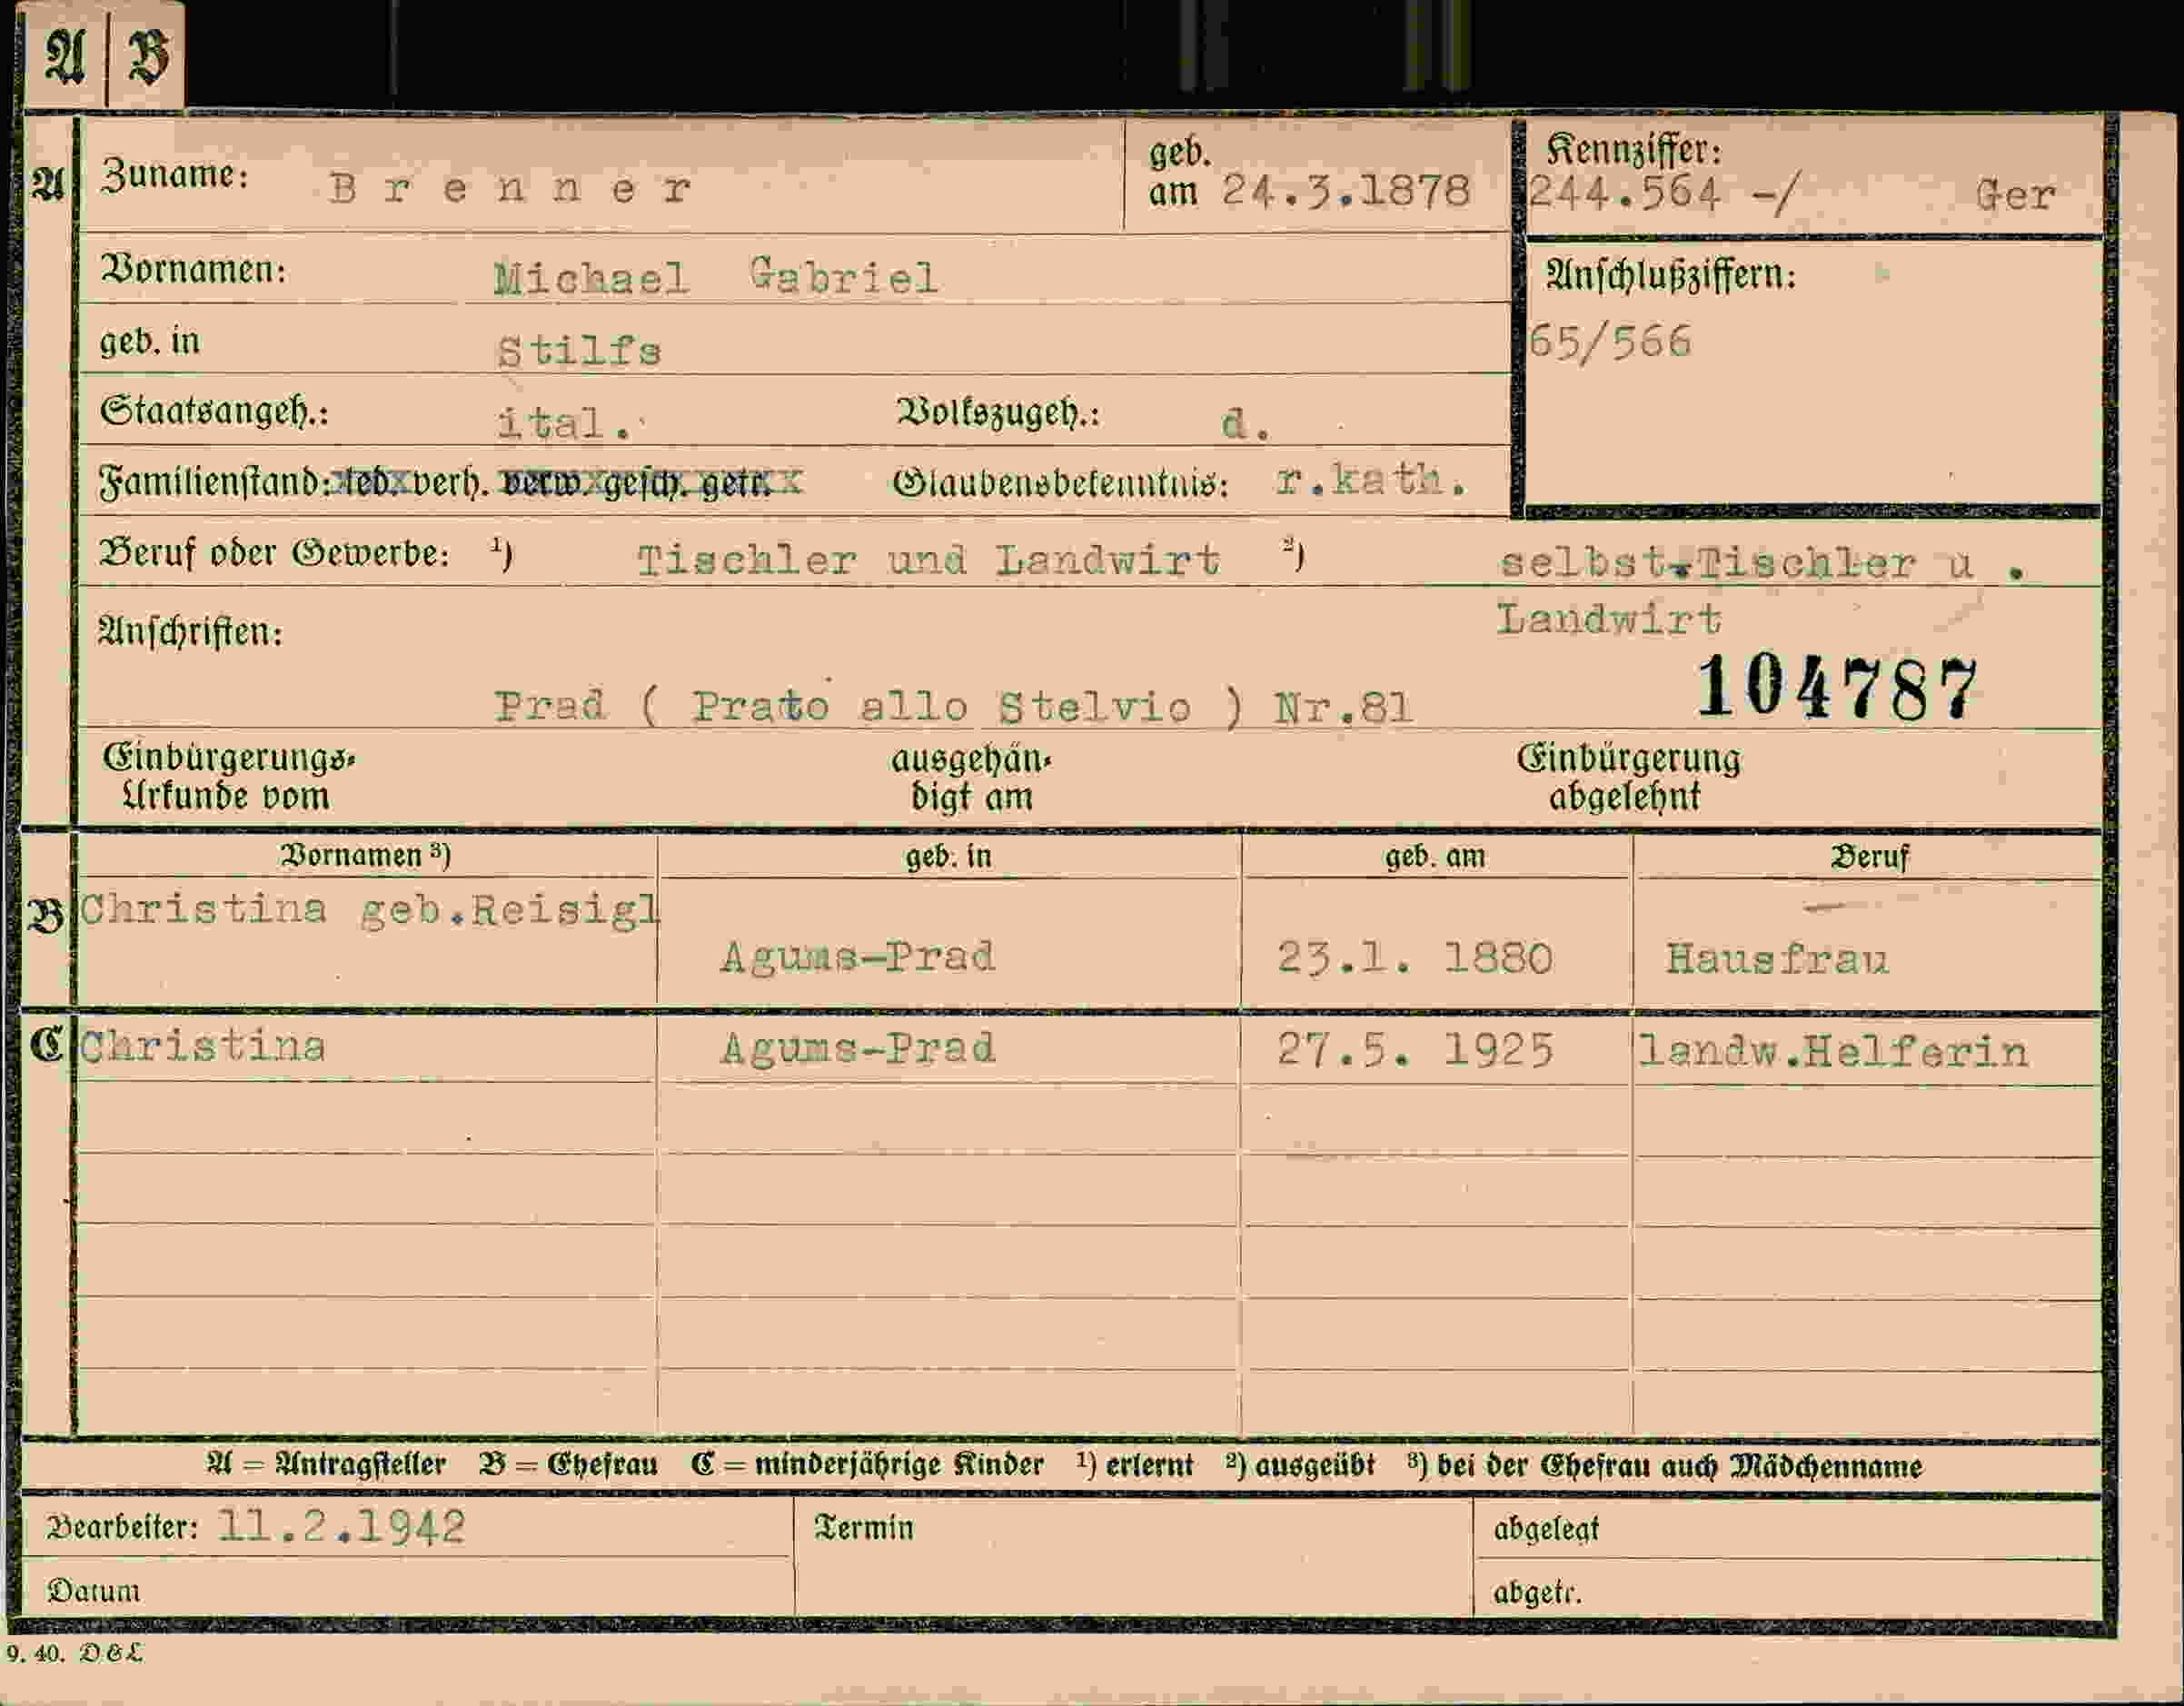 A B
A Zuname: Brenner geb. am 24.3.1878 Kennziffer: 244.564 -/ Ger
Vornamen: Michael Gabriel Anschlußziffern:
geb. in Stilfs 65/566
Staatsangeh.: ital. Volkszugeh.: d.
Familienstand: led. verh. verw. gesch. getr. Glaubensbekenntnis: r.kath.
Beruf oder Gewerbe: ¹) Tischler und Landwirt ²) selbst.Tischler u .
Anschriften: Landwirt
104787
Prad ( Prato allo Stelvio ) Nr.81
Einbürgerungs- ausgehän- Einbürgerung
Urkunde vom digt am abgelehnt
Vornamen ³) geb. in geb. am Beruf
B Christina geb.Reisigl
Agums-Prad 23.1. 1880 Hausfrau
C Christina Agums-Prad 27.5. 1925 landw.Helferin
A = Antragsteller B = Ehefrau C = minderjährige Kinder ¹) erlernt ²) ausgeübt ³) bei der Ehefrau auch Mädchenname
Bearbeiter: 11.2.1942 Termin abgelegt
Datum abgetr.
9. 40. D&L